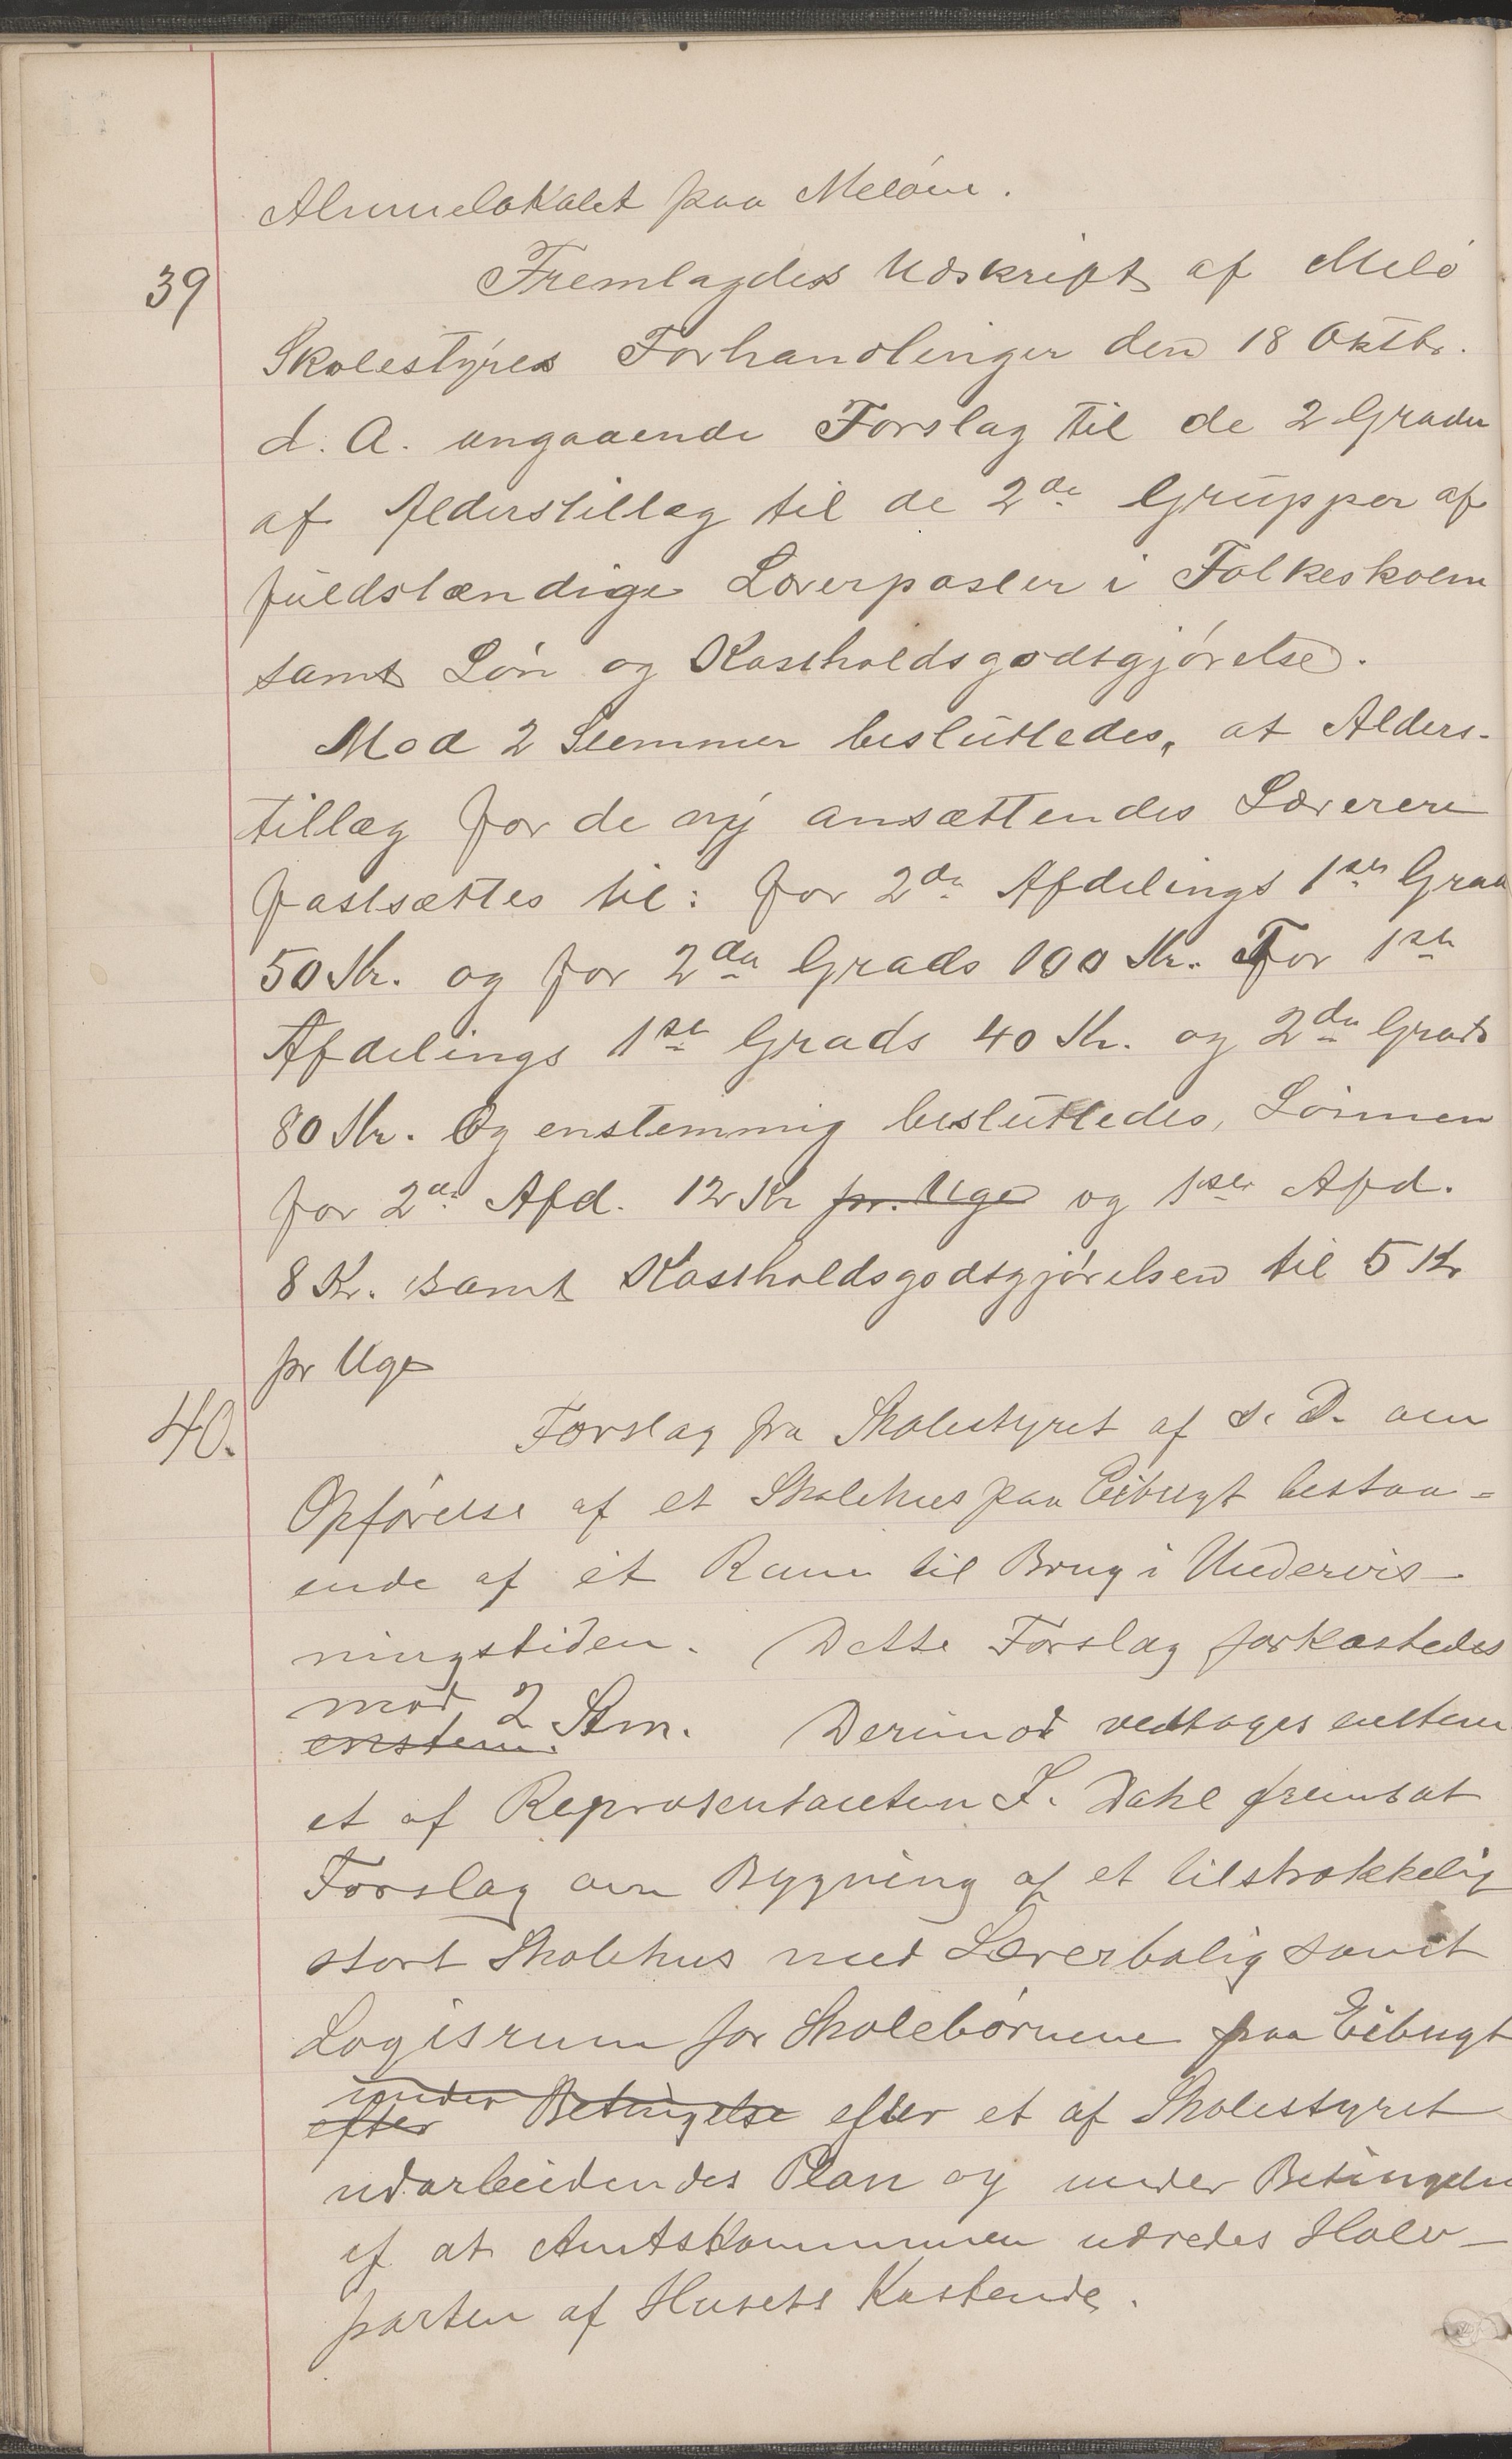 Almuelokalet paa Meløen.
39 Fremlagdes Udskript af Melø
Skolestyres Forhandlinger den 18 Oktbr.
d. A. angaaende Forslag til de 2 Grader
af Alderstillæg til de 2de Grupper af
fuldstændige Lærerposter i Folkeskolen
samt Løn og Kostholdsgodtgjørelse.
Mod 2 Stemmer besluttedes, at Alders-
tillæg for de ny ansættendes Lærere
fastsættes til: for 2den Afdelings 1ste Grad
50 Kr. og for 2den Grads 100 Kr. For 1ste
Afdelings 1ste Grads 40 Kr. og 2den Grads
80 Kr. Og enstemmig besluttedes, Lønnen
for 2den Afd. 12 Kr pr. Uge og 1ste Afd.
8 Kr. samt Kostholdsgodtgjørelsen til 5 Kr
pr Uge
40. Forslag fra Skolestyret af s. D. om
Opførelse af et Skolehus paa Eibugt bestaa-
ende af èt Rum til Brug i Undervis-
ningstiden. Dette Forslag forkastedes
mod 2 Stm.
enstem. Derimod vedtages enstem
et af Repræsentanten I. Dahl fremsat
Forslag om Bygning af et tilstrækkelig
stort Skolehus med Lærerbolig samt
Logisrum for Skolebørnene paa Eibugt
under
efter Betingelse efter et af Skolestyret
udarbeidendes Plan og under Betingelse
af at Amtskommunen udredes Halv-
parten af Husets Kostende.